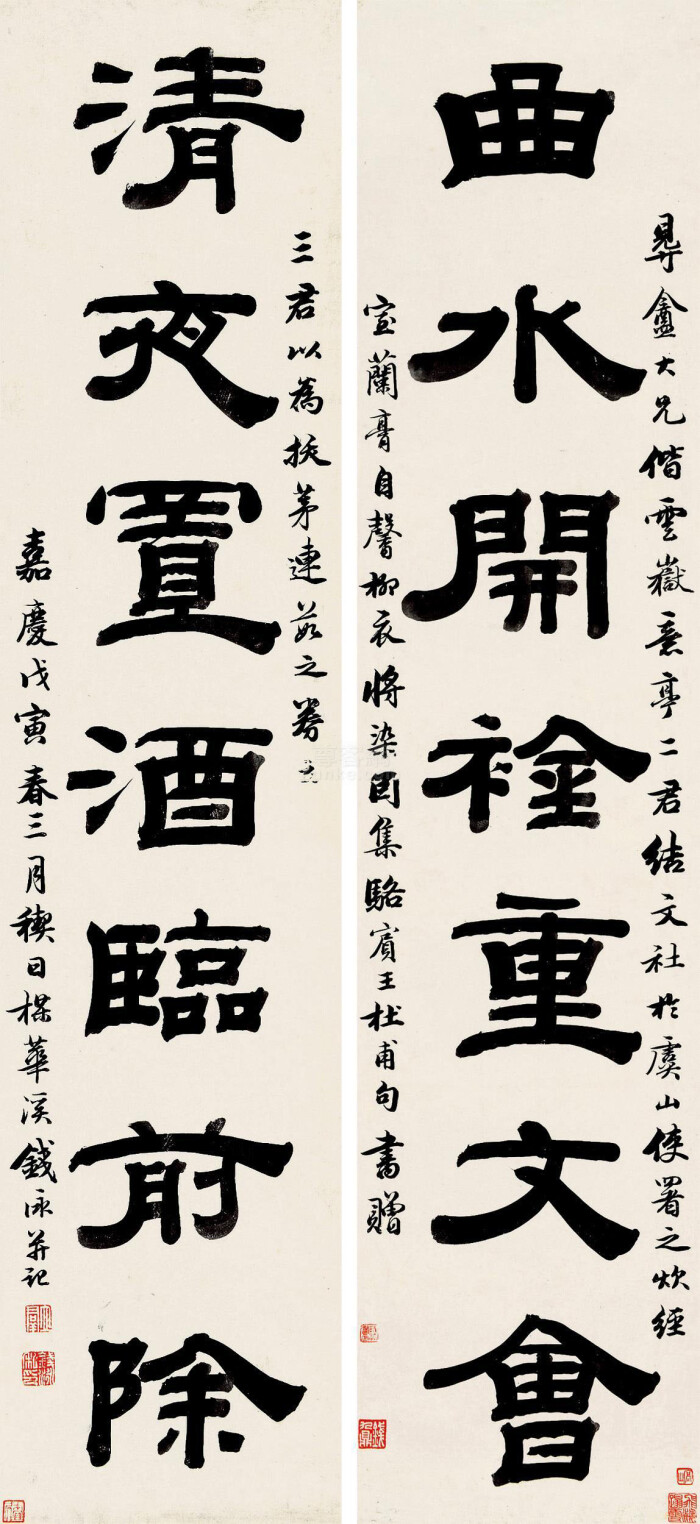 盦大兄偕雲嶽意亭二君結文社於虞山使署之炊經
曲水開䘳重文會
室蘭膏自馨柳衣將染因集駱賓王杜甫句書贈
三君以為拔茅連茹之券云
清夜置酒臨前除
嘉慶戊寅春三月稧日楳華溪錢泳并記